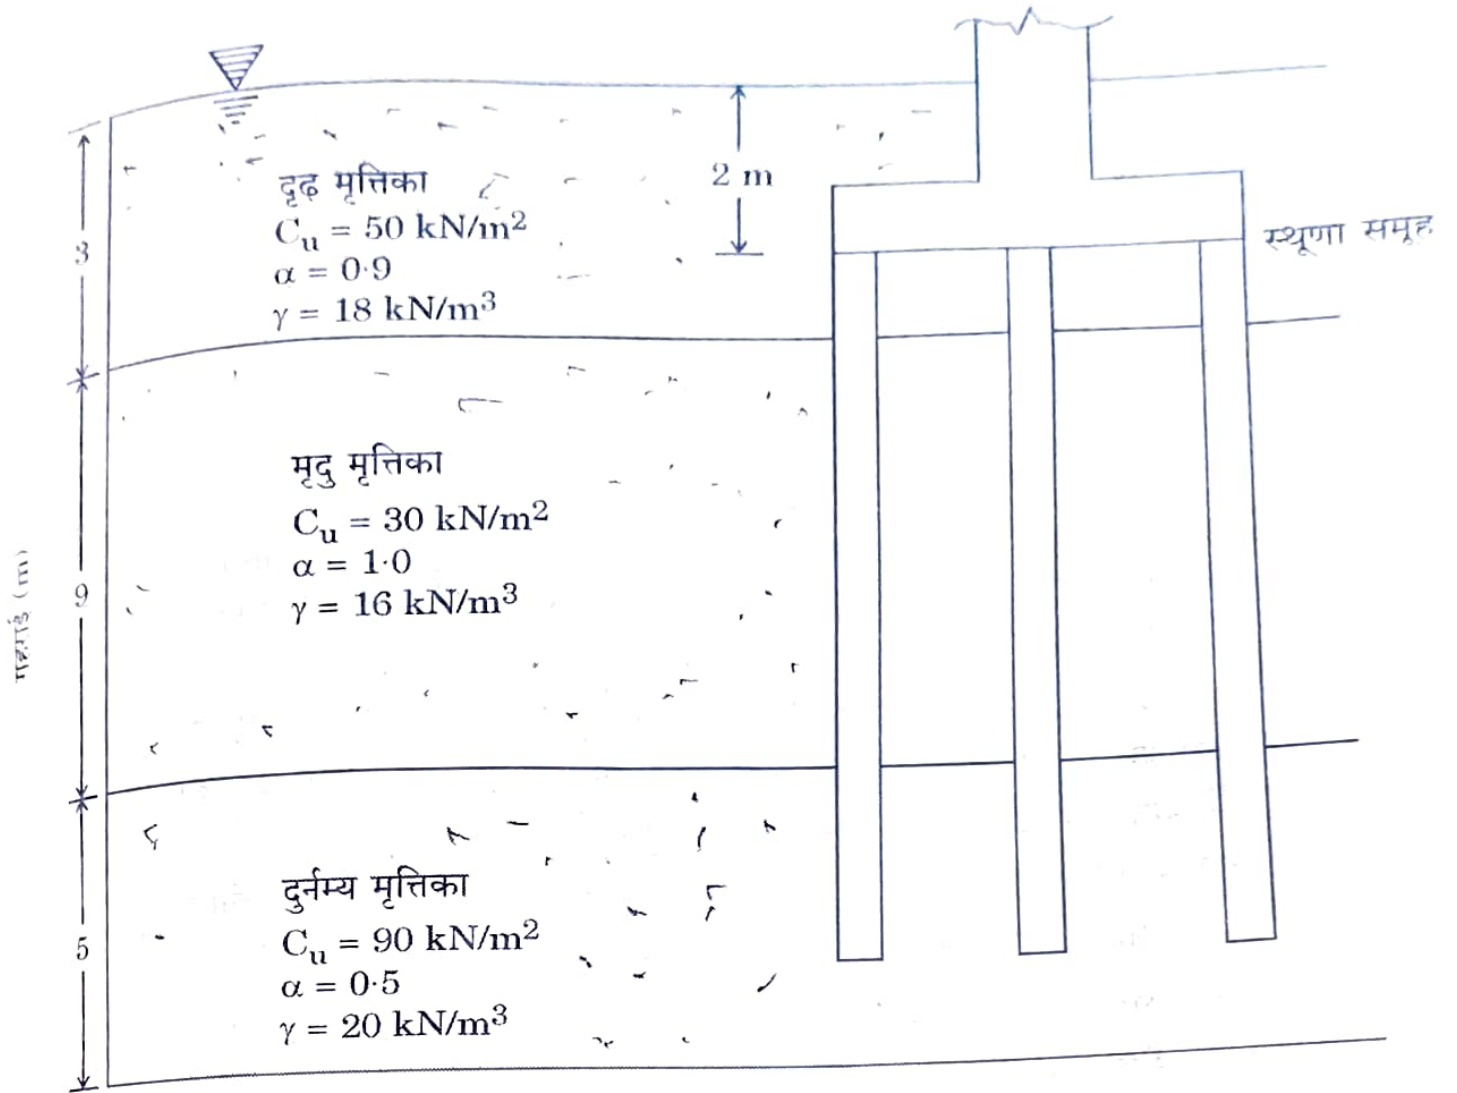 2 m
दृढ मृत्तिका
Cu = 50 kN/m²
α = 0·9
γ = 18 kN/m³
3
स्थूणा समूह
मृदु मृत्तिका
Cu = 30 kN/m²
α = 1·0
γ = 16 kN/m³
9
गहराई (m)
दुर्नम्य मृत्तिका
Cu = 90 kN/m²
α = 0·5
γ = 20 kN/m³
5